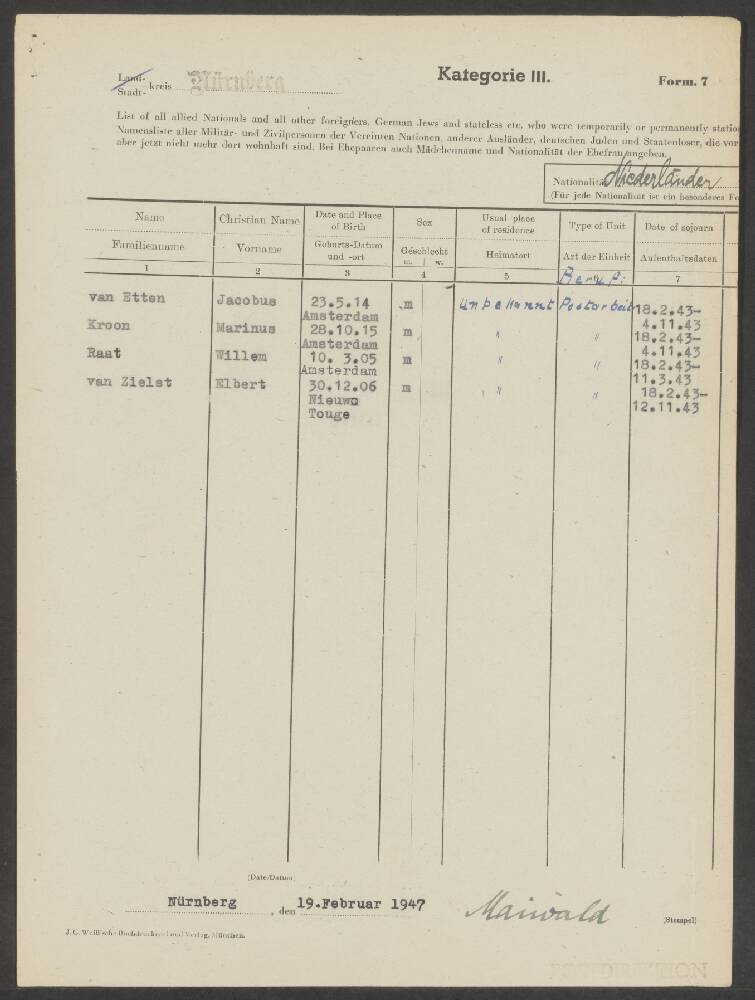 Kategorie III.
Form. 7
Land-
Stadt- kreis Nürnberg
List of all allied Nationals and all other foreigners, German Jews and stateless etc, who were temporarily or permanently statio
Namensliste aller Militär- und Zivilpersonen der Vereinten Nationen, anderer Ausländer, deutschen Juden und Staatenloser, die vor
aber jetzt nicht mehr dort wohnhaft sind. Bei Ehepaaren auch Mädchenname und Nationalität der Ehefrau angeben.
Nationalität Niederländer
(Für jede Nationalität ist ein besonderes Fo
Name Christian Name Date and Place of Birth Sex Usual place of residence Type of Unit Date of sojourn
Familienname Vorname Geburts-Datum und -ort Geschlecht m. | w. Heimatort Art der Einheit Aufenthaltsdaten
1 2 3 4 5 6 7
Beruf:
van Etten Jacobus 23.5.14 m Unbekannt Postarbeit 18.2.43-
Amsterdam 4.11.43
Kroon Marinus 28.10.15 m " " 18.2.43-
Amsterdam 4.11.43
Raat Willem 10. 3.05 m " " 18.2.43-
Amsterdam 11.3.43
van Zielst Elbert 30.12.06 m " " 18.2.43-
Nieuwe 12.11.43
Touge
(Date/Datum
Nürnberg, den 19.Februar 1947
Maiwald
(Stempel)
J. G. Weiß'sche Buchdruckerei und Verlag, München.